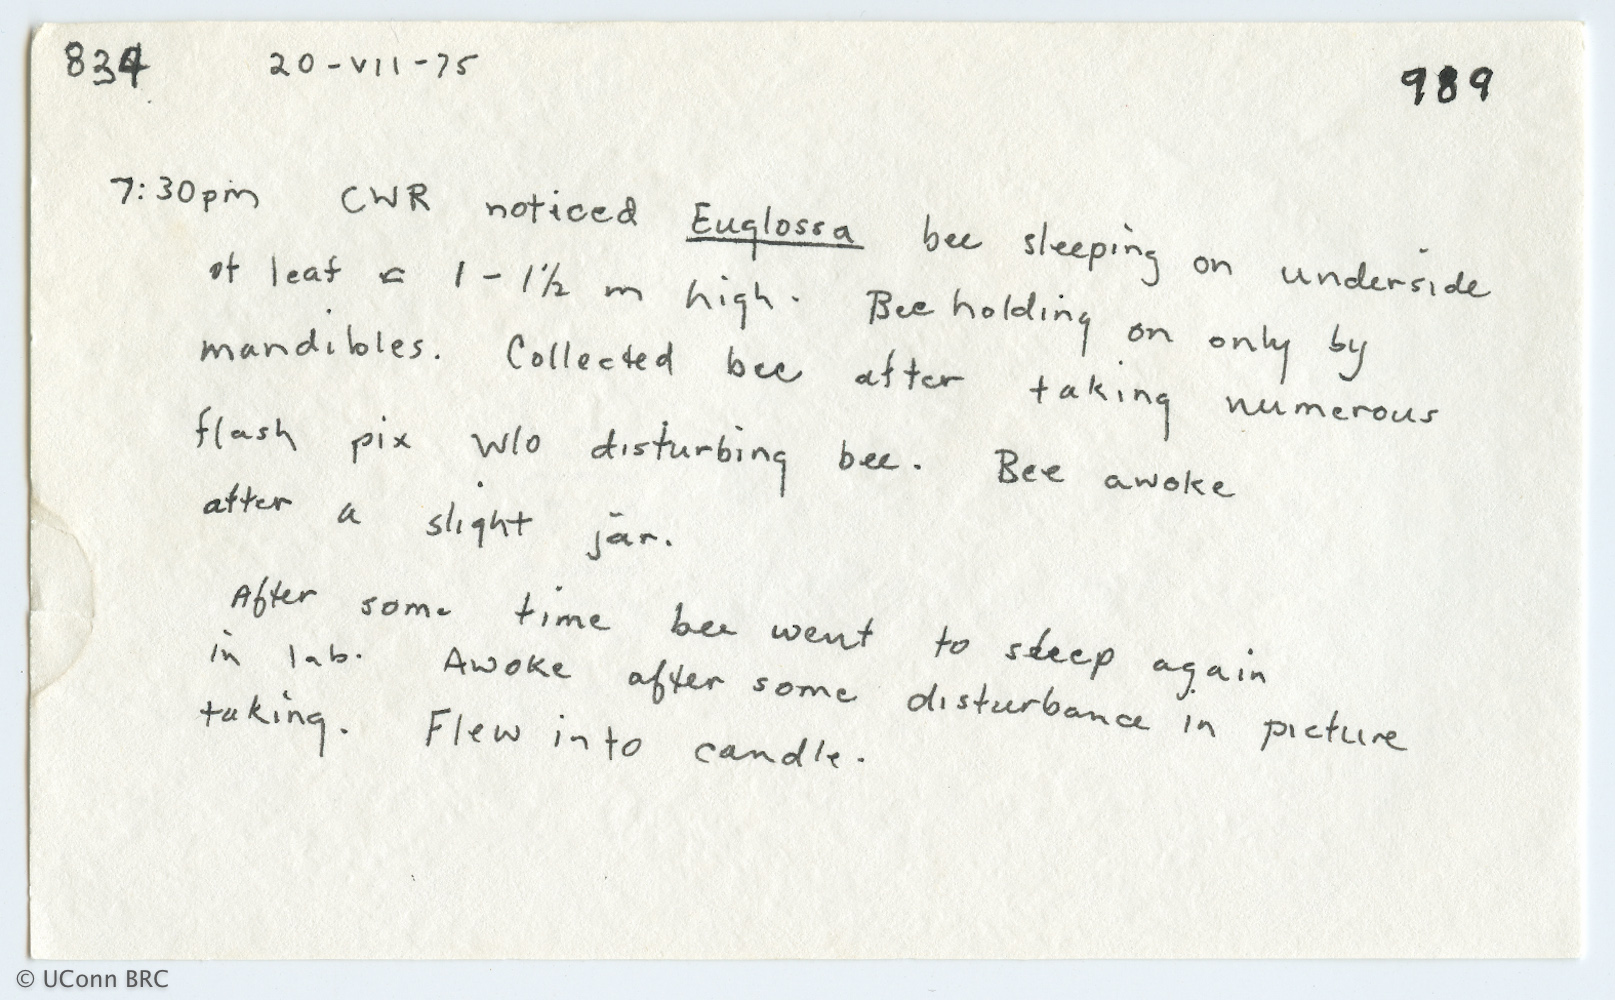 834 20-VII-75 989
7:30pm CWR noticed Euglossa bee sleeping on underside
of leaf c 1-1½ m high. Bee holding on only by
mandibles. Collected bee after taking numerous
flash pix w/o disturbing bee. Bee awoke
after a slight jar.
After some time bee went to sleep again
in lab. Awoke after some disturbance in picture
taking. Flew into candle.
© UConn BRC